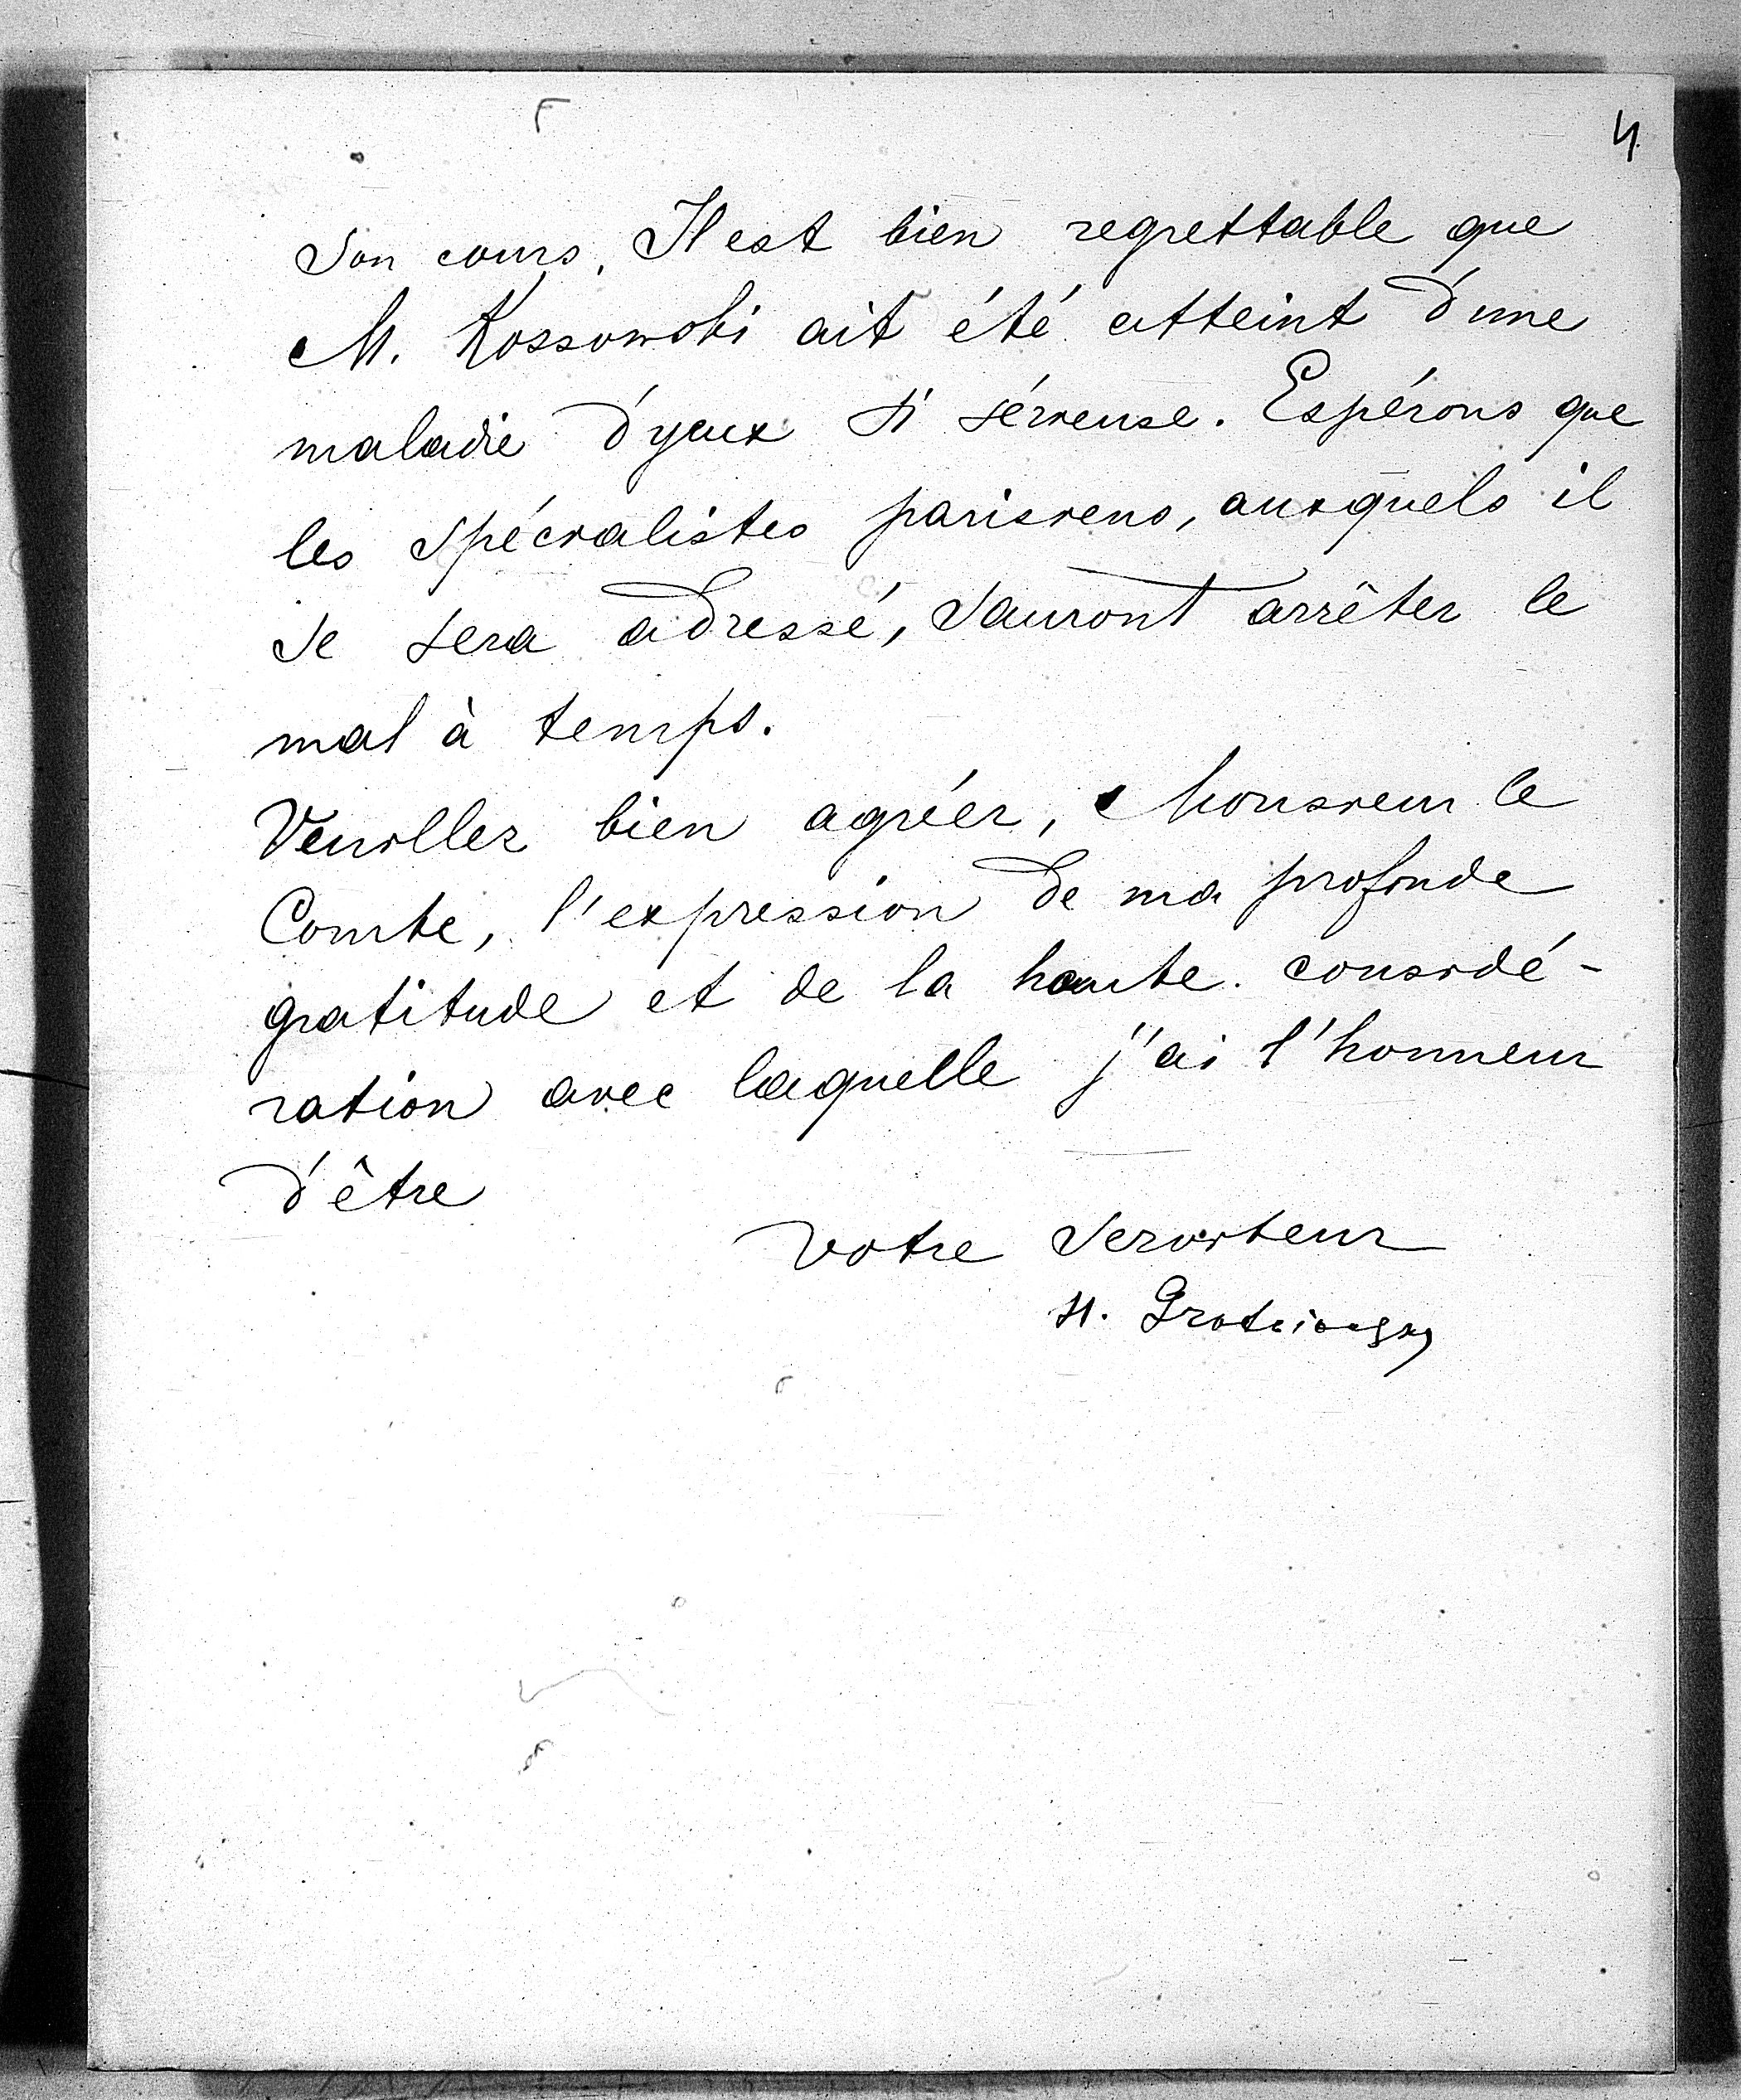 4.
son cours. Il est bien regrettable que
M. Kossowski ait été atteint d'une
maladie d'yeux si sérieuse. Espérons que
les spécialistes parisiens, auxquels il
se sera adressé, sauront arrêter le
mal à temps.
Veuillez bien agréer, Monsieur le
Comte, l'expression de ma profonde
gratitude et de la haute considé-
ration avec laquelle j'ai l'honneur
d'être
Votre serviteur